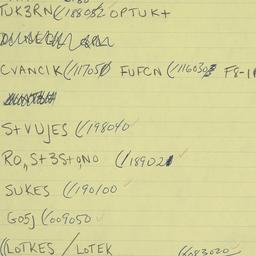 TUK3RN(/188082 OPTUK+
CVANCIK(/117050 FUFCN (/116030 F8-1
S+VUJES (/198040
RO,S+3S+9NO (/189021
SUKES (/190100
GO5J (/009050
(/LOTKES / LOTEK (/083020